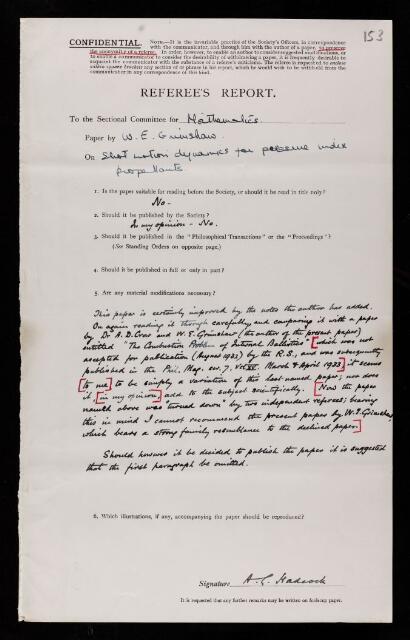 153
CONFIDENTIAL. NOTE.—It is the invariable practice of the Society's Officers, in correspondence
with the communicator, and through him with the author of a paper, to preserve
the anonymity of a referee. In order, however, to enable an author to consider suggested modifications, or
to enable a communicator to consider the desirability of withdrawing a paper, it is frequently desirable to
acquaint the communicator with the substance of a referee's criticisms. The referee is requested to enclose
within square brackets any section of or phrase in his report, which he would wish to be withheld from the
communicator in any correspondence of this kind.
REFEREE'S REPORT.
To the Sectional Committee for Mathematics.
Paper by W. E. Grimshaw.
On Shot motion dynamics for pressure index
propellants
1. Is the paper suitable for reading before the Society, or should it be read in title only?
No -
2. Should it be published by the Society?
In my opinion - No.
3. Should it be published in the "Philosophical Transactions" or the "Proceedings"?
(See Standing Orders on opposite page.)
4. Should it be published in full or only in part?
5. Are any material modifications necessary?
This paper is certainly improved by the notes the author has added.
On again reading it through carefully and comparing it with a paper
by Dr. A. D. Crow and W. E. Grimshaw (the author of the present paper)
entitled "The Combustion Problem of Internal Ballistics" [which was not
accepted for publication (August 1932) by the R.S., and was subsequently
published in the Phil. Mag. ser. 7. Vol XV. March & April 1933] it seems
[to me] to be simply a variation of this last-named paper; nor does
it [in my opinion] add to the subject scientifically. [Now the paper
named above was turned down by two independent referees; bearing
this in mind I cannot recommend the present paper by W. E. Grimshaw,
which bears a strong family resemblance to the declined paper.]
Should however it be decided to publish the paper it is suggested
that the first paragraph be omitted.
6. Which illustrations, if any, accompanying the paper should be reproduced?
Signature A. G. Hadcock
It is requested that any further remarks may be written on foolscap paper.